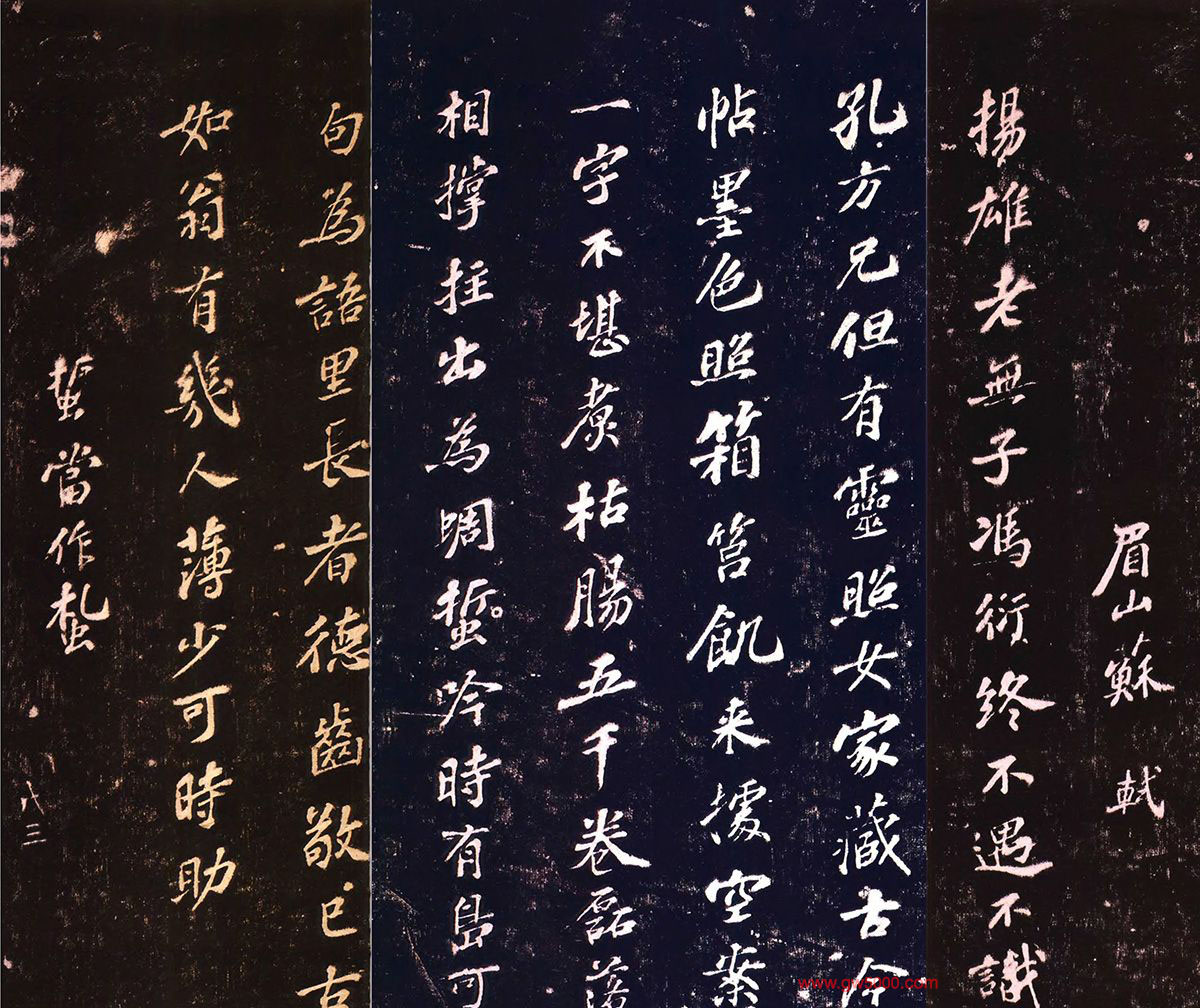 眉山蘇軾
揚雄老無子馮衍終不遇不識
孔方兄但有靈照女家藏古今
帖墨色照箱筥飢来據空案
一字不堪煮枯腸五千卷磊落
相撐拄出為蜩蜇吟時有島可
句為語里長者德齒敬已古
如翁有幾人薄少可時助
蜇當作蚻
八三